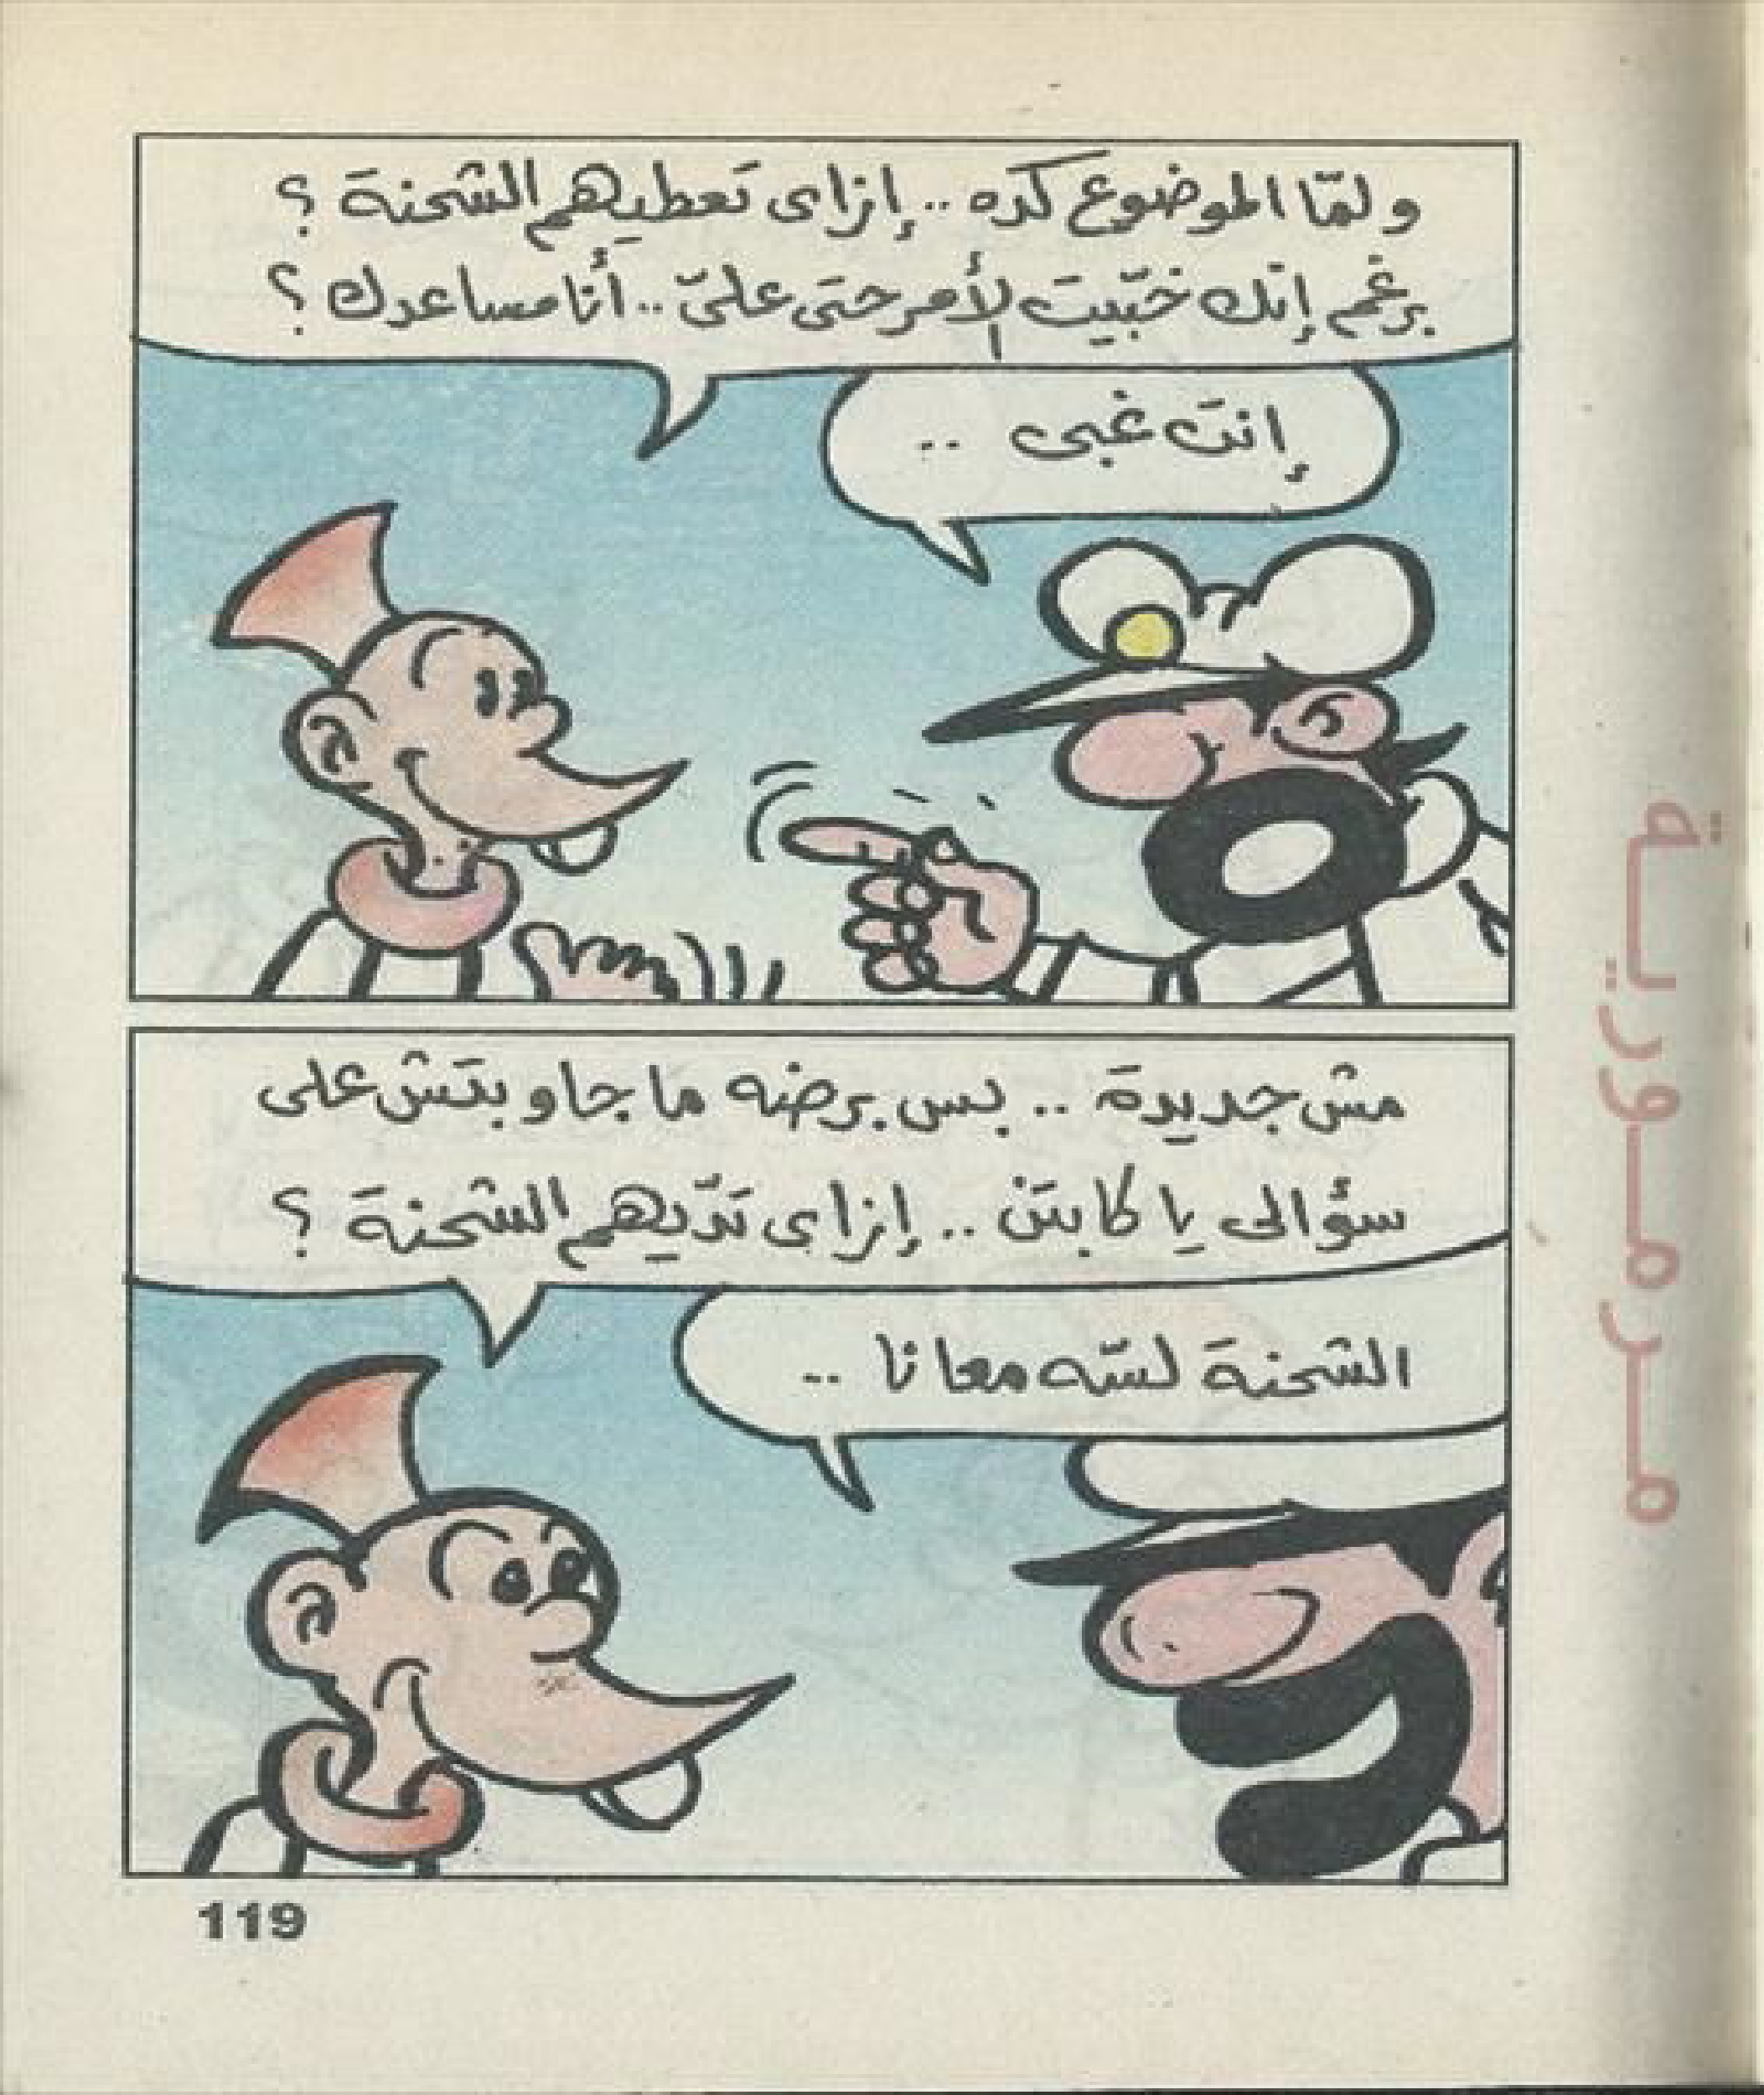 ولمّا الموضوع كده .. إزاى تعطيهم الشحنة ؟
برغم إنك خبّيت الأمر حتى علىّ .. أنا مساعدك ؟
إنت غبى ..
مش جديدة .. بس برضه ما جاوبتش على
سؤالى يا كابتن .. إزاى تدّيهم الشحنة ؟
الشحنة لسّه معانا ..
119
مرمورية